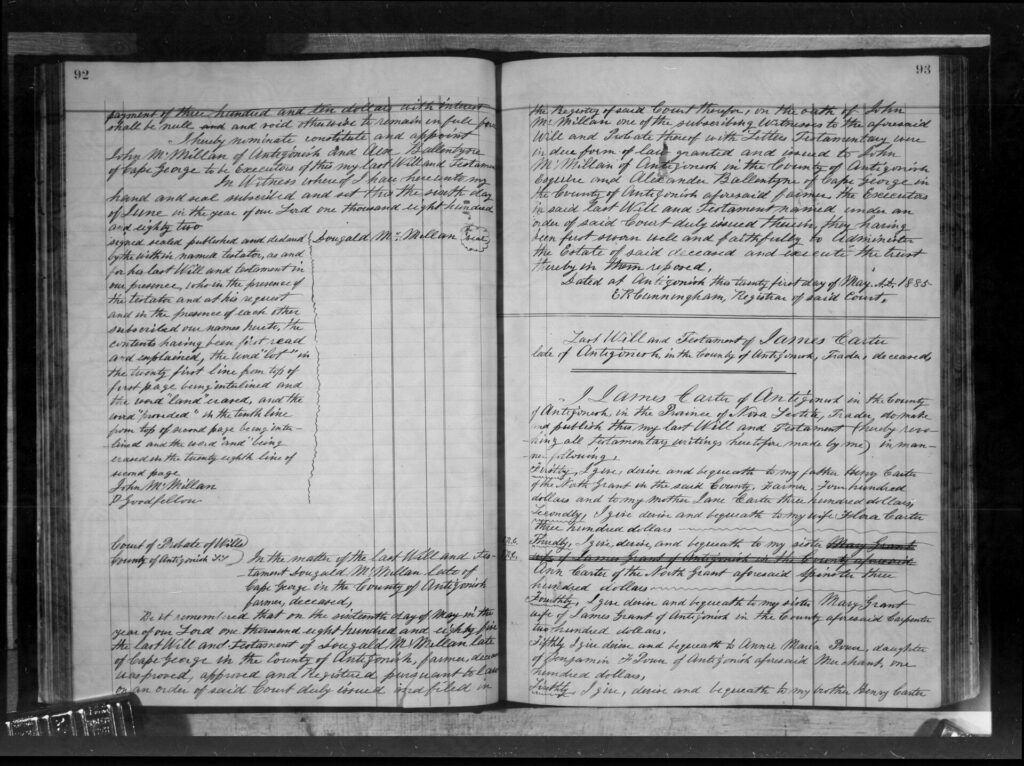 92
payment of three hundred and ten dollars with interest
shall be null and and void otherwise to remain in full
I hereby nominate constitute and appoint
John McMillan of Antigonish and Alex Ballentyne
of Cape George to be Executors of this my last Will and Testament
In Witness where of I have here unto my
hand and seal subscribed and set this the sixth day
of June in the year of our Lord one thousand eight hundred
and eighty two
signed sealed published and declared
by the with in named testator, as and
for his last Will and testament in
our presence, who in the presence of
the testator and at his request
and in the presence of each other
subscribed our names hereto, the
contents having been first read
and explained, the word "lot" in
the twenty first line from top of
first page being interlined and
the word "land" erased, and the
word "provided" in the tenth line
from top of second page being inter-
lined and the word "and" being
erased in the twenty eighth line of
second page
John McMillan
P Goodfellow
Dougald McMillan
Seal
Court of Probate of Wills
County of Antigonish SS
In the matter of the last Will and Tes-
tament Dougald McMillan late of
Cape George in the County of Antigonish
farmer, deceased,
Be it remembered that on the sixteenth day of May in the
year of our Lord one thousand eight hundred and eighty five
the last Will and Testament of Dougald McMillan late
of Cape George in the County of Antigonish, farmer, deceased
was proved, approved and Registered pursuant to law
on an order of said Court duly issued and filed in
93
the Registry of said Court therefor, on the oath of John
McMillan one of the subscribing Witnesses to the aforesaid
Will and Probate thereof with Letters Testamentary were
in due form of law granted and issued to John
McMillan of Antigonish in the County of Antigonish
Esquire and Alexander Ballentyne of Cape George in
the County of Antigonish aforesaid farmer, the Executors
in said last Will and Testament named, under an
order of said Court duly issued therein, they having
been first sworn well and faithfully to Administer
the Estate of said deceased and execute the trust
thereby in them reposed.
Dated at Antigonish this twenty first day of May A.D. 1885
E R Cunningham, Registrar of said Court.
Last Will and Testament of James Carter
late of Antigonish, in the County of Antigonish, Trader, deceased
I James Carter of Antigonish in the County
of Antigonish, in the Province of Nova Scotia, Trader, do make
and publish this my last Will and Testament (hereby revo-
king all Testamentary writings heretofore made by me) in man-
ner following,
Firstly, I give, devise and bequeath to my father Henry Carter
of the North Grant in the said County, Farmer, Four hundred
dollars and to my Mother Jane Carter three hundred dollars,
Secondly, I give devise and bequeath to my wife Flora Carter
three hundred dollars
Thirdly, I give, devise, and bequeath to my sister Mary Grant
wife of James Grant of Antigonish in the County aforesaid
Ann Carter of the North Grant aforesaid Spinster three
hundred dollars
Fourthly, I give devise and bequeath to my sister Mary Grant
wife of James Grant of Antigonish in the County aforesaid Carpenter
two hundred dollars.
Fifthly I give devise and bequeath to Annie Maria Power, daughter
of Benjamin F Power of Antigonish aforesaid Merchant, one
hundred dollars,
Sixthly I give, devise and bequeath to my brother Henry Carter